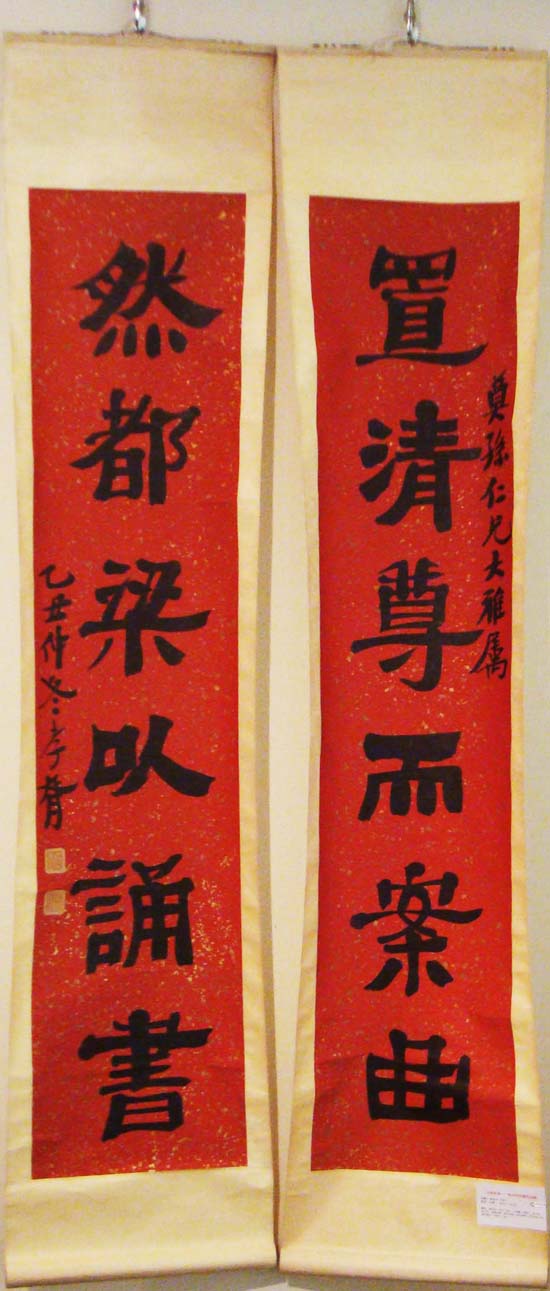 置清尊而案曲
奠孫仁兄大雅属
然都梁以誦書
乙丑仲冬孝胥